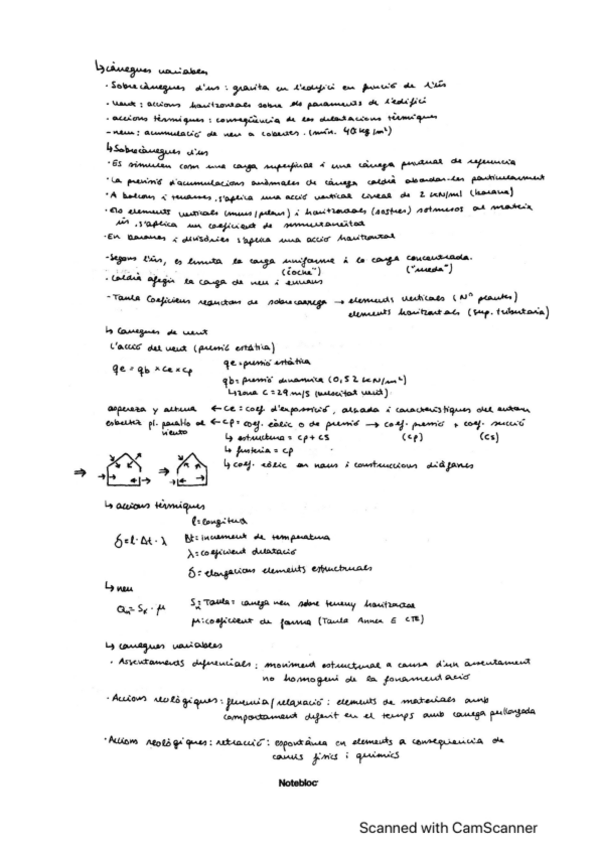 ↳ càrregues variables
· Sobrecàrregues d'ús: gravita en l'edifici en funció de l'ús
· vent: accions horitzontals sobre els paraments de l'edifici
· accions tèrmiques: conseqüència de les dilatacions tèrmiques
- neu: acumulació de neu a cobertes. (mín. 40 kg/m²)
↳ Sobrecàrregues d'ús
· Es simulen com una carga superficial i una càrrega puntual de referència
· La previsió d'acumulacions anòmales de càrrega caldrà abordar-les particularment
· A balcons i terrasses, s'aplica una acció vertical lineal de 2 kN/ml (barana)
· Els elements verticals (murs/pilars) i horitzontals (sostres) sotmesos al mateix
ús, s'aplica un coeficient de simultaneïtat
· En baranes i divisòries s'aplica una acció horitzontal
- Segons l'ús, es limita la carga uniforme i la carga concentrada.
("coche") ("rueda")
· Caldrà afegir la carga de neu i envans
- Taula Coeficiens reductors de sobrecarrega → elements verticals (Nº plantes)
elements horitzontals (sup. tributaria)
↳ carregues de vent
L'acció del vent (pressió estàtica)
qe = qb × ce × cp
qe = pressió estàtica
qb = pressió dinamica (0,52 kN/m²)
↳ zona C = 29 m/s (velocitat vent)
aspereza y altura ← ce = coef. d'exposició, alçada i característiques del entorn
esbeltez pl. paralelo al ← cp = coef. eòlic o de pressió → coef. pressió + coef. succió
viento (cp) (cs)
↳ estructura = cp + cs
↳ fusteria = cp
↳ coef. eòlic en naus i construccions diàfanes
↳ accions tèrmiques
l = longitud
δ = l · Δt · λ
Δt = increment de temperatura
λ = coeficient dilatació
δ = elongacions elements estructurals
↳ neu
qn = Sk · μ
Sk = Taula = carrega neu sobre terreny horitzontal
μ: coeficient de forma (Taula Annex E CTE)
↳ carregues variables
· Assentaments diferencials: moviment estructural a causa d'un assentament
no homogeni de la fonamentació
· Accions reològiques: fluencia/relaxació: elements de materials amb
comportament diferit en el temps amb carrega perllongada
· Accions reològiques: retracció: espontànea en elements a consequencia de
canvis físics i químics
Notebloc
Scanned with CamScanner